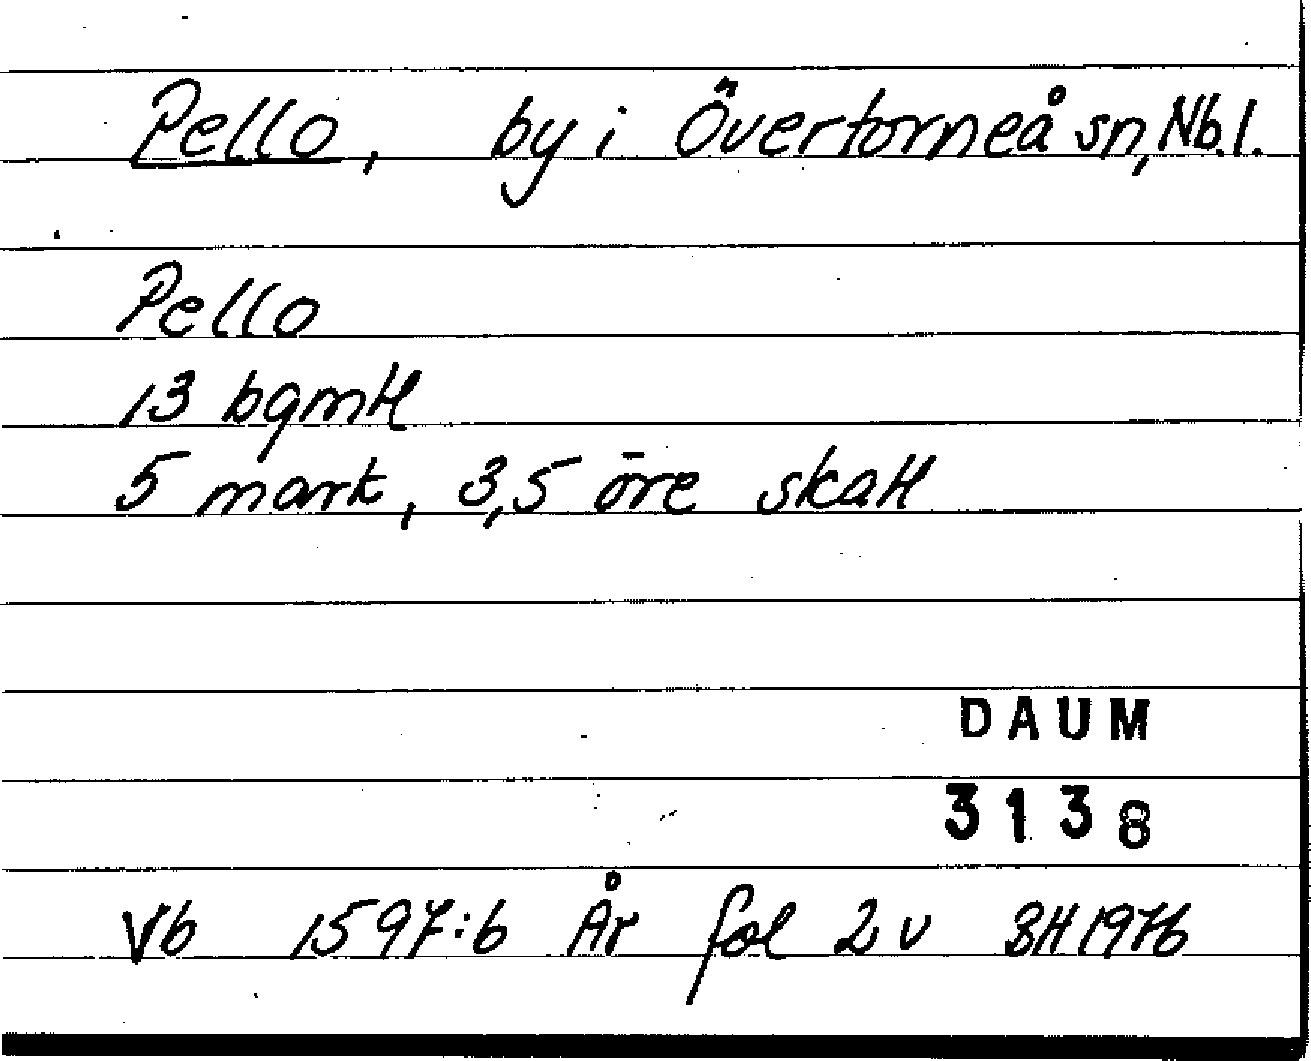 Pello, by i Övertorneå sn, Nb.l.
Pello
13 bgmtl
5 mark, 3,5 öre skatt
DAUM
3138
Vb 1597:6 År fol 2v BH 1976